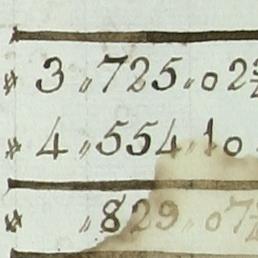 # 3 „ 725 „ 02
# 4 „ 554 „ 10
# „ 829 „ 07